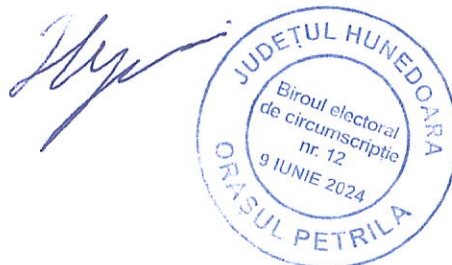 JUDEȚUL HUNEDOARA
Biroul electoral
de circumscripție
nr. 12
9 IUNIE 2024
ORAȘUL PETRILA